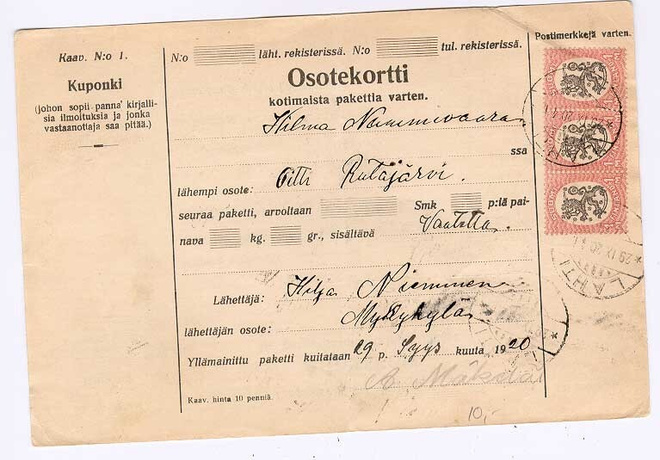 Kaav. N:o 1.
Kuponki
(johon sopii panna kirjalli-
sia ilmoituksia ja jonka
vastaanottaja saa pitää.)
N:o läht. rekisterissä. N:o tul. rekisterissä.
Postimerkkejä varten.
Osotekortti
kotimaista pakettia varten.
Hilma Nammivaara
ssa
lähempi osote: Otti Rutajärvi.
seuraa paketti, arvoltaan Smk p:iä pai-
nava kg. gr., sisältävä Vaatetta.
Lähettäjä: Hilja Nieminen
lähettäjän osote: Myllykylä
Yllämainittu paketti kuitataan 29 p. Syys kuuta 1920
A. Mäkelä
Kaav. hinta 10 penniä.
10,-
LAHTI
29 IX 20